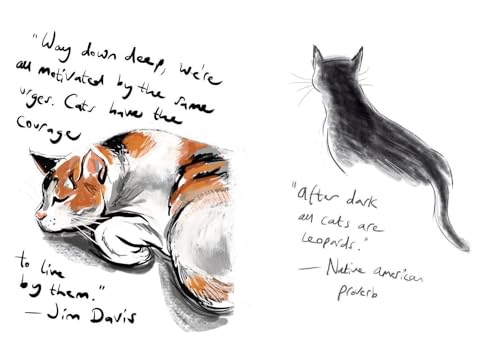 "Way down deep, we're
all motivated by the same
urges. Cats have the
courage
to live
by them."
— Jim Davis
"after dark
all cats are
leopards."
— Native american
proverb